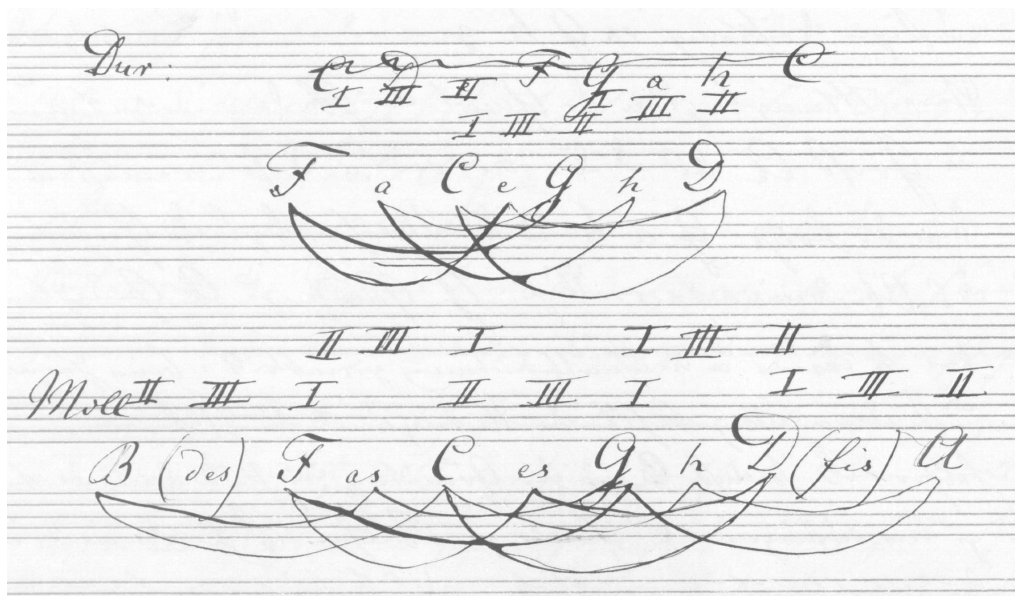 Dur: C D F G a h C
I III II II III II
I III II
F a C e G h D
II III I I III II
Moll II III I II III I I III II
B (des) F as C es G h D (fis) A